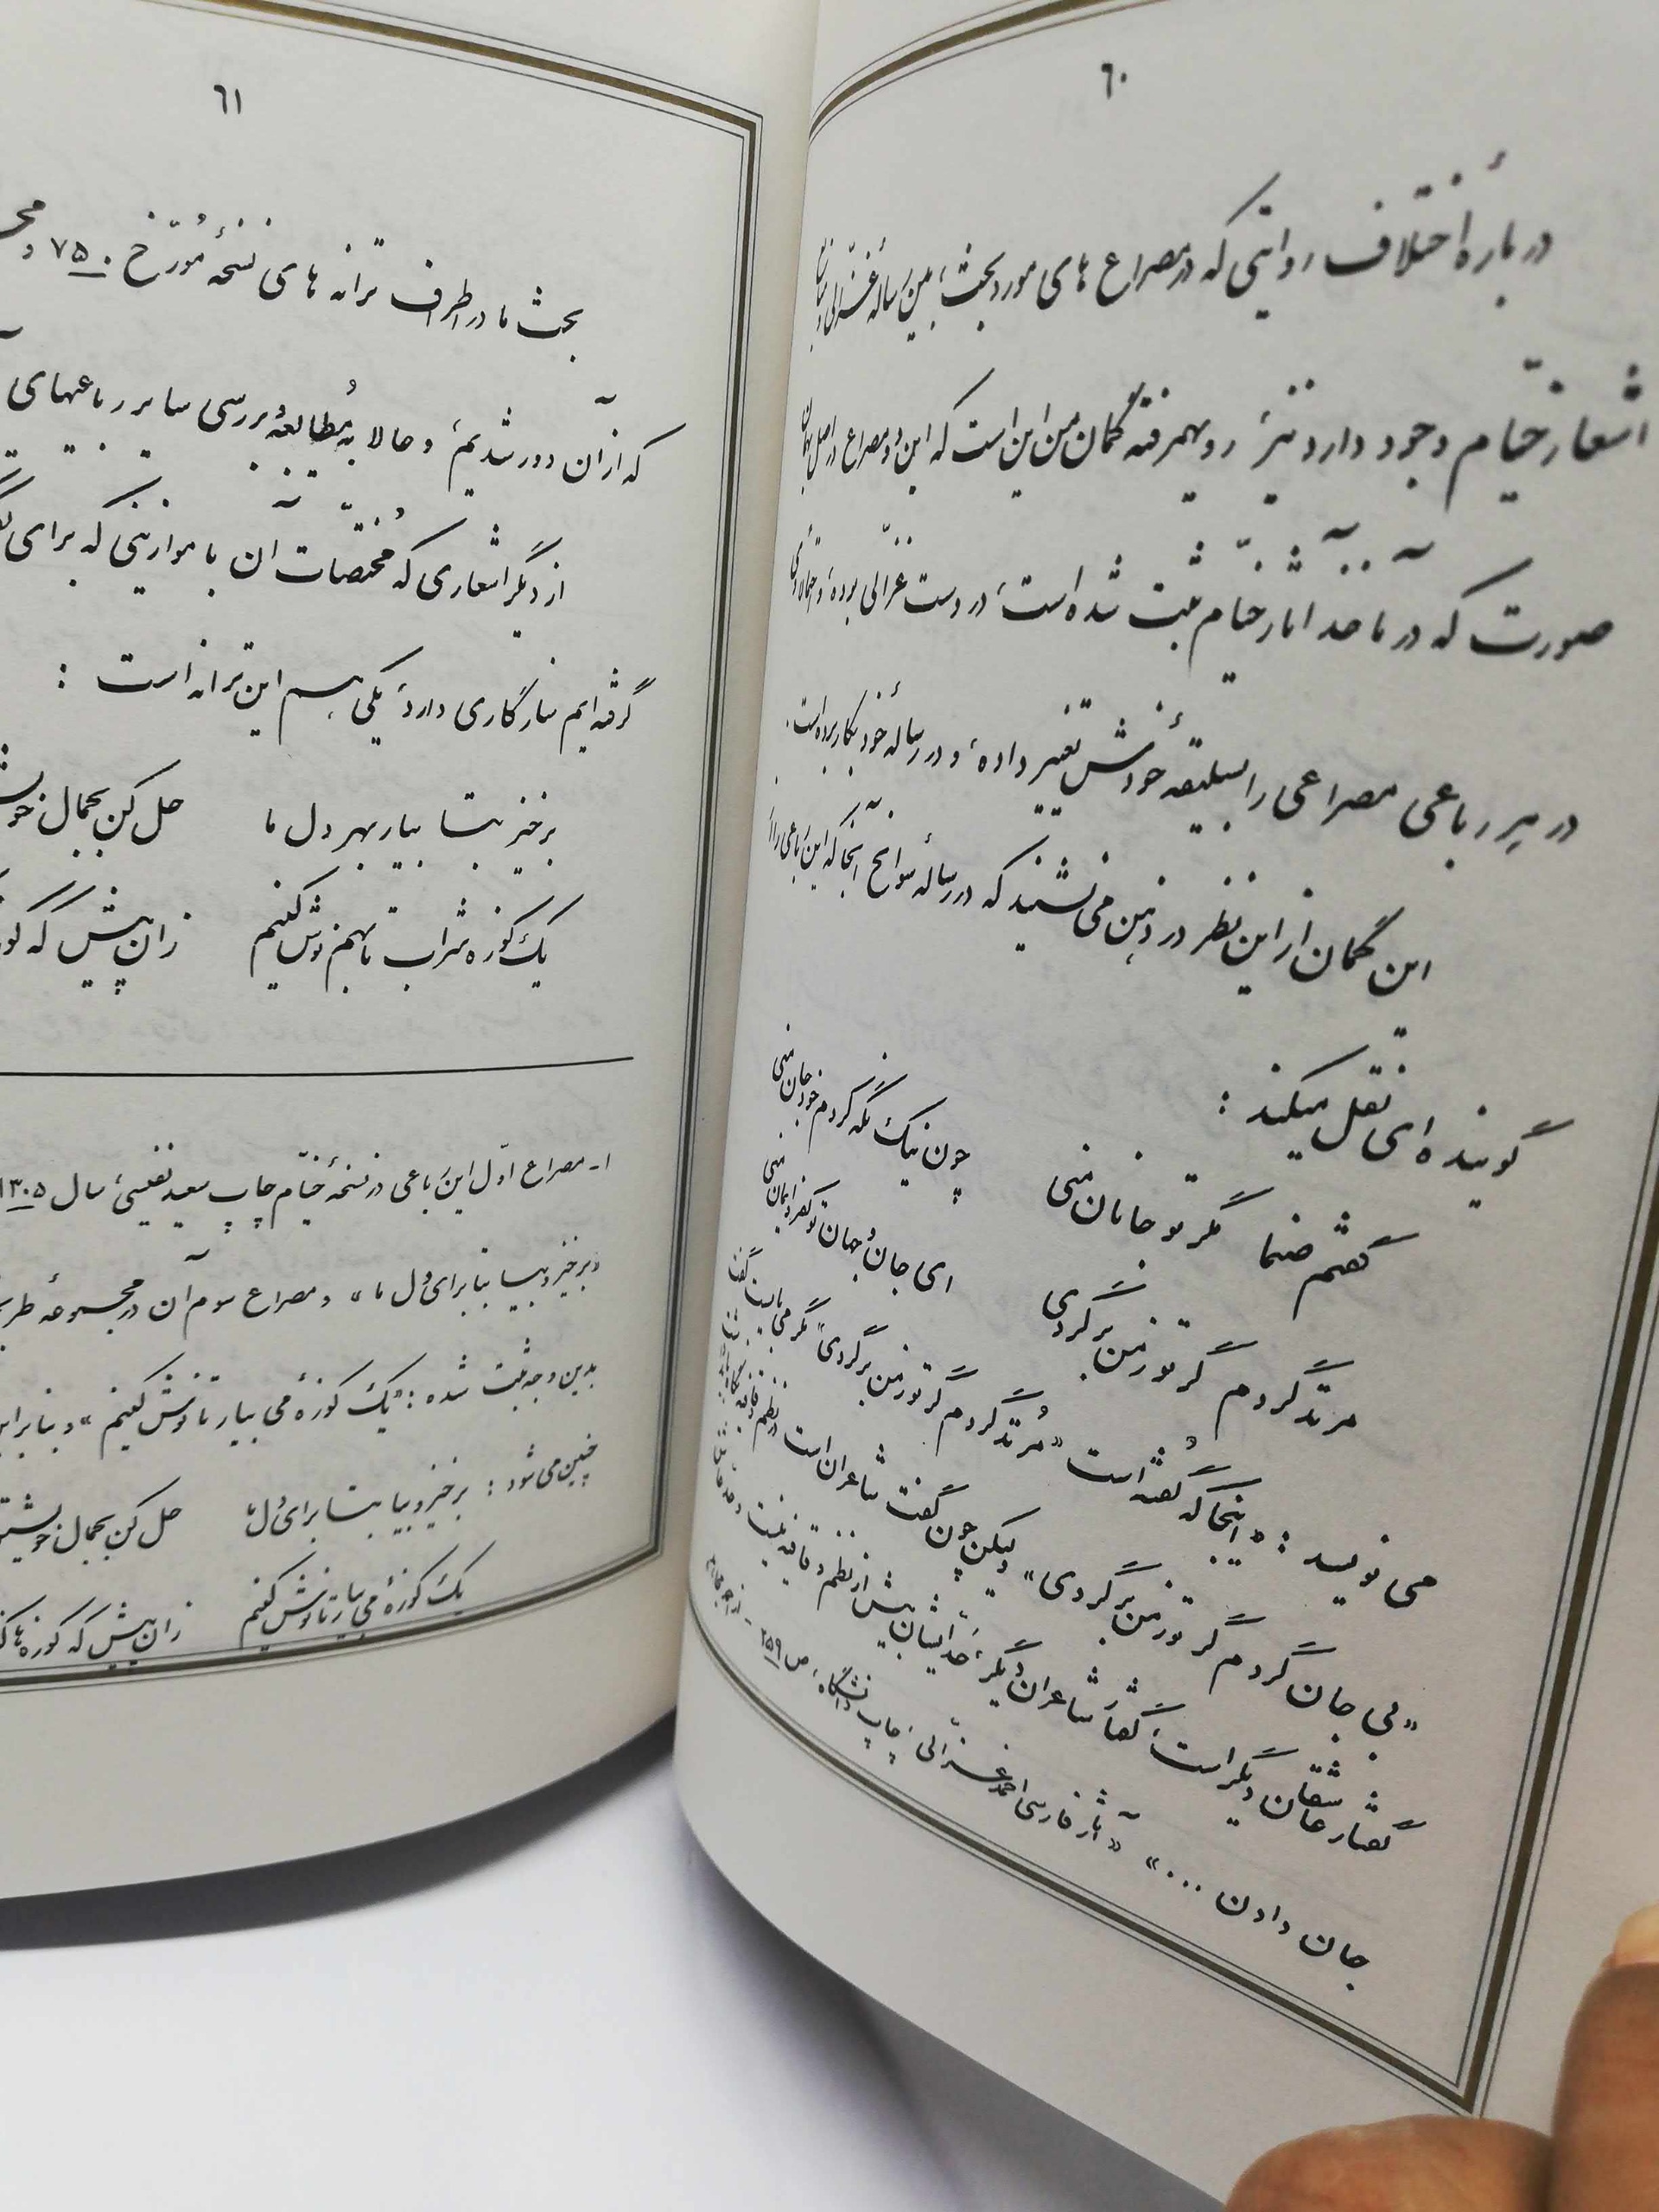 ٦٠
دربارهٔ اختلاف روایتی که در مصراع های مورد بحث، بین رسالهٔ غزالی و
اشعار خیام وجود دارد نیز، رویهمرفته گمان من این است که این دو مصراع در اصل بهمان
صورت که در مآخذ آثار خیّام ثبت شده است، در دست غزالی بوده، و احتمالا وی
در هر رباعی مصراعی را بسلیقهٔ خودش تغییر داده، و در رسالهٔ خود بکار برده است.
این گمان از این نظر در ذهن می نشیند که در رسالهٔ سوانح آنجا که این رباعی را از
گوینده ای نقل میکند :
گفتم صنما مگر تو جانان منی چون نیک نگه کردم خود جان منی
مرتد گردم گر تو ز من برگردی ای جان و جهان تو کفر و ایمان منی
می نویسد : «اینجا که گفته است «مُرتد گردم گر تو ز من برگردی» مگر می بایست گفت
«بی جان گردم گر تو ز من برگردی» ولیکن چون گفت شاعران است در نظم و قافیه
گفتار عاشقان دیگر است، گفتار شاعران دیگر، حد ایشان بیش از نظم و قافیه نیست و حد عاشق
جان دادن ...» «آثار فارسی احمد غزّالی، چاپ دانشگاه، ص ۲۵۹ -
٦١
بحث ما در اطراف ترانه های نسخهٔ مُورّخ ۷۵۰ و
که از آن دور شدیم، و حالا به مُطالعهٔ و بررسی سایر رباعیهای
از دیگر اشعاری که مُختصّات آن با موازینی که برای
گرفته ایم سازگاری دارد، یکی هم این ترانه است :
برخیز بتا بیار بهر دل ما حل کن بجمال
یک کوزه شراب تا بهم نوش کنیم زان پیش که
۱- مصراع اوّل این رباعی در نسخهٔ خیّام چاپ سعید نفیسی، سال ۱۳۰۵
«برخیز و بیا بتا برای دل ما» و مصراع سوم آن در مجموعهٔ
بدین وجه ثبت شده : «یک کوزهٔ می بیار تا نوش کنیم» و بنابراین
چنین می شود : برخیز و بیا بتا برای دل ما حل کن بجمال خویشتن
یک کوزهٔ می بیار تا نوش کنیم زان پیش که کوزه ها